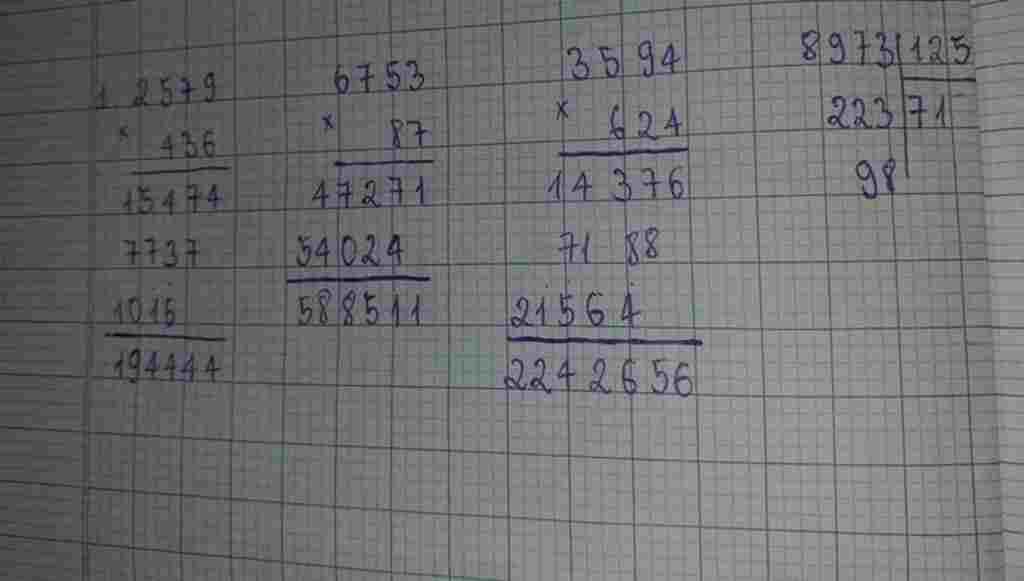 1 2579
× 436
15474
7737
1015
194444
6753
× 87
47271
54024
588511
3594
× 624
14 376
71 88
21564
2242656
8973 125
223 71
98